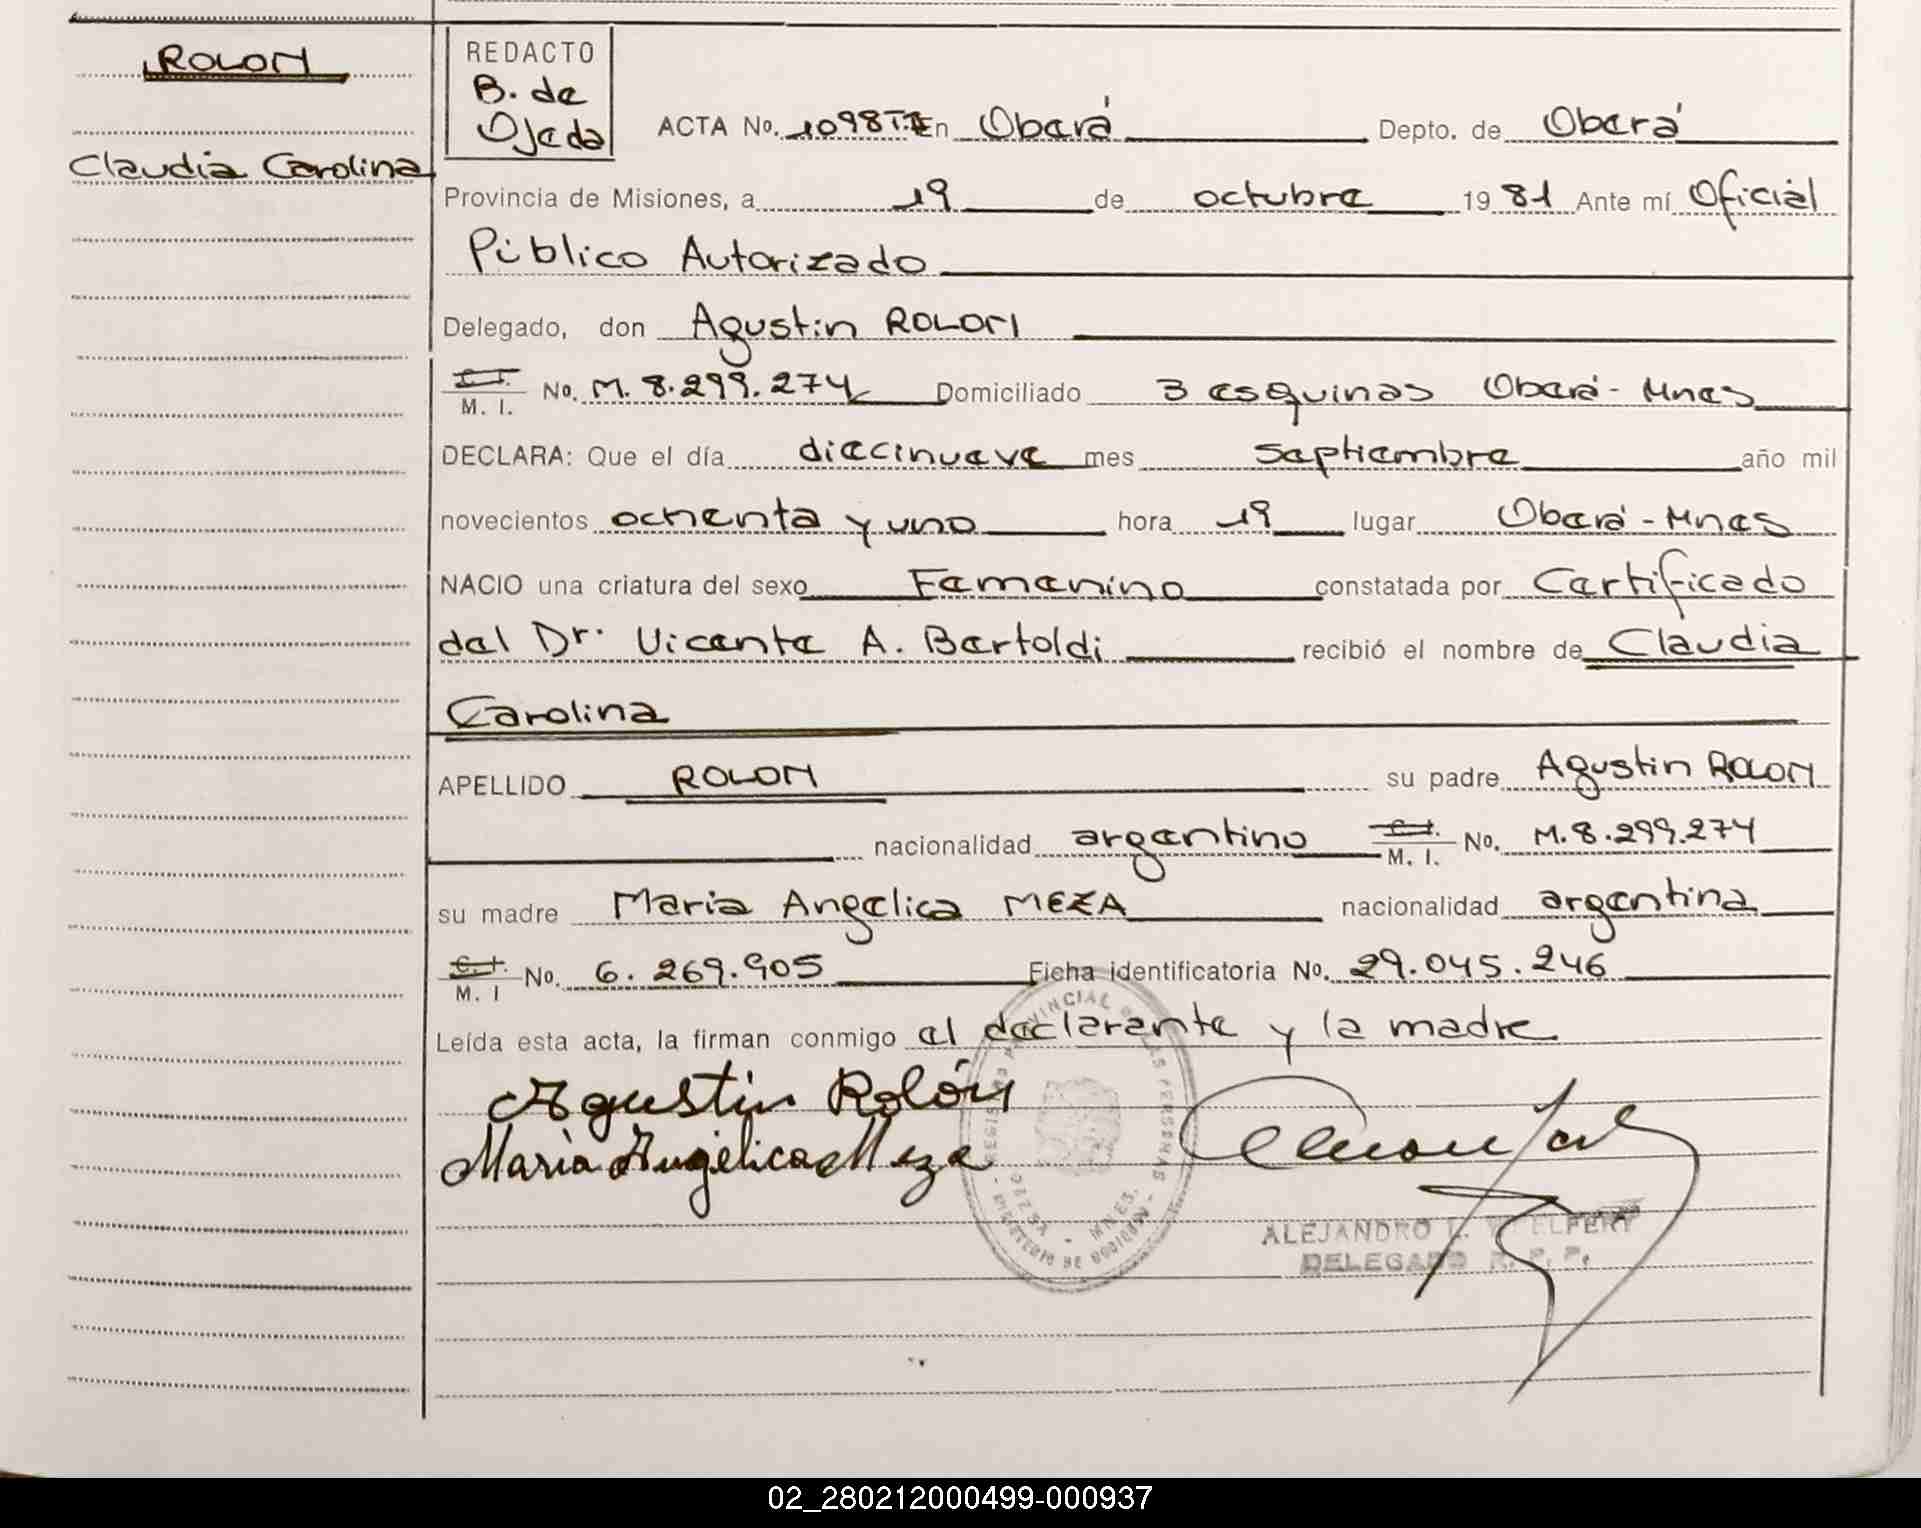 ROLON
Claudia Carolina
REDACTO
B. de
Ojeda
ACTA No. 1098 T.II En Oberá Depto. de Oberá
Provincia de Misiones, a 19 de octubre 1981 Ante mí Oficial
Público Autorizado
Delegado, don Agustin ROLON
C.I. M. I. No. M. 8.299.274 Domiciliado 3 esquinas Oberá - Mnes
DECLARA: Que el día diecinueve mes septiembre año mil
novecientos ochenta y uno hora 19 lugar Oberá - Mnes
NACIO una criatura del sexo Femenino constatada por Certificado
del Dr. Vicente A. Bertoldi recibió el nombre de Claudia
Carolina
APELLIDO ROLON su padre Agustin ROLON
nacionalidad argentino C.I. M. I. No. M. 8.299.274
su madre Maria Angelica MEZA nacionalidad argentina
C.I. M. I No. 6.269.905 Ficha identificatoria No. 29.045.246
Leída esta acta, la firman conmigo el declarante y la madre
Agustin Rolón
María Angélica Meza
ALEJANDRO
DELEGADO R. P. P.
02_280212000499-000937